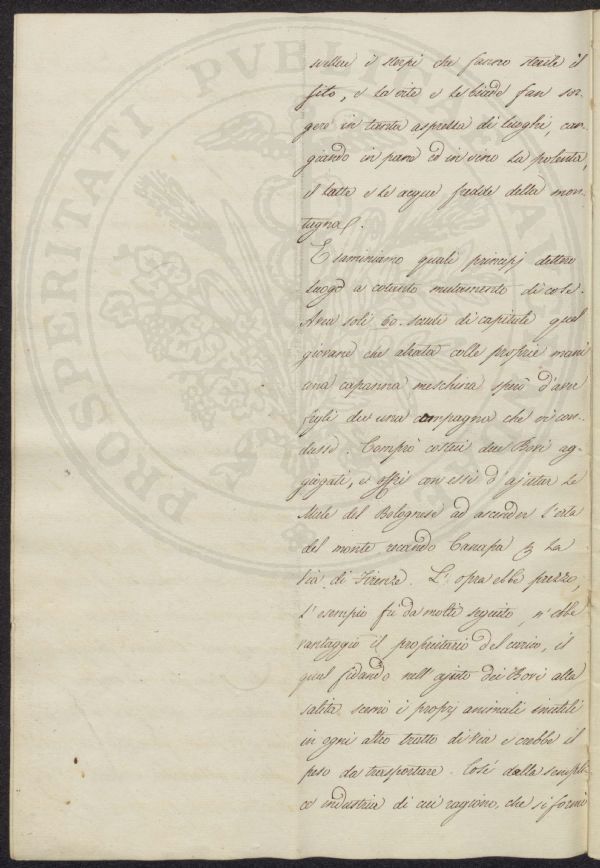 svellere i sterpi che fanno sterile il
sito, e la vite e le biade fan sor-
gere in tanta asprezza di luoghi, can-
giando in pane ed in vino la polenta,
il latte e le acque fredde della mon-
tagna.
Esaminiamo quali principj dettero
luogo a cotesto mutamento di cose.
Avea soli 60 scudi di capitale quel
giovane che alzata colle proprie mani
una capanna meschina sperò d'aver
figli da una compagna che vi con-
dusse. Comprò costui due Bovi ag-
giogati, e offrì con essi d'ajutar le
Mule del Bolognese ad ascender l'erta
del monte recando Canapa p la
via di Firenze. L'opra ebbe prezzo,
l'esempio fù da molti seguito, n'ebbe
vantaggio il proprietario del carico, il
qual fidando nell'ajuto dei Bovi alla
salita scemò i proprj animali inutili
in ogni altro tratto di via e crebbe il
peso da trasportare. Così dalla sempli-
ce industria di cui ragiono, che si formò
PROSPERITATI PVBLICAE